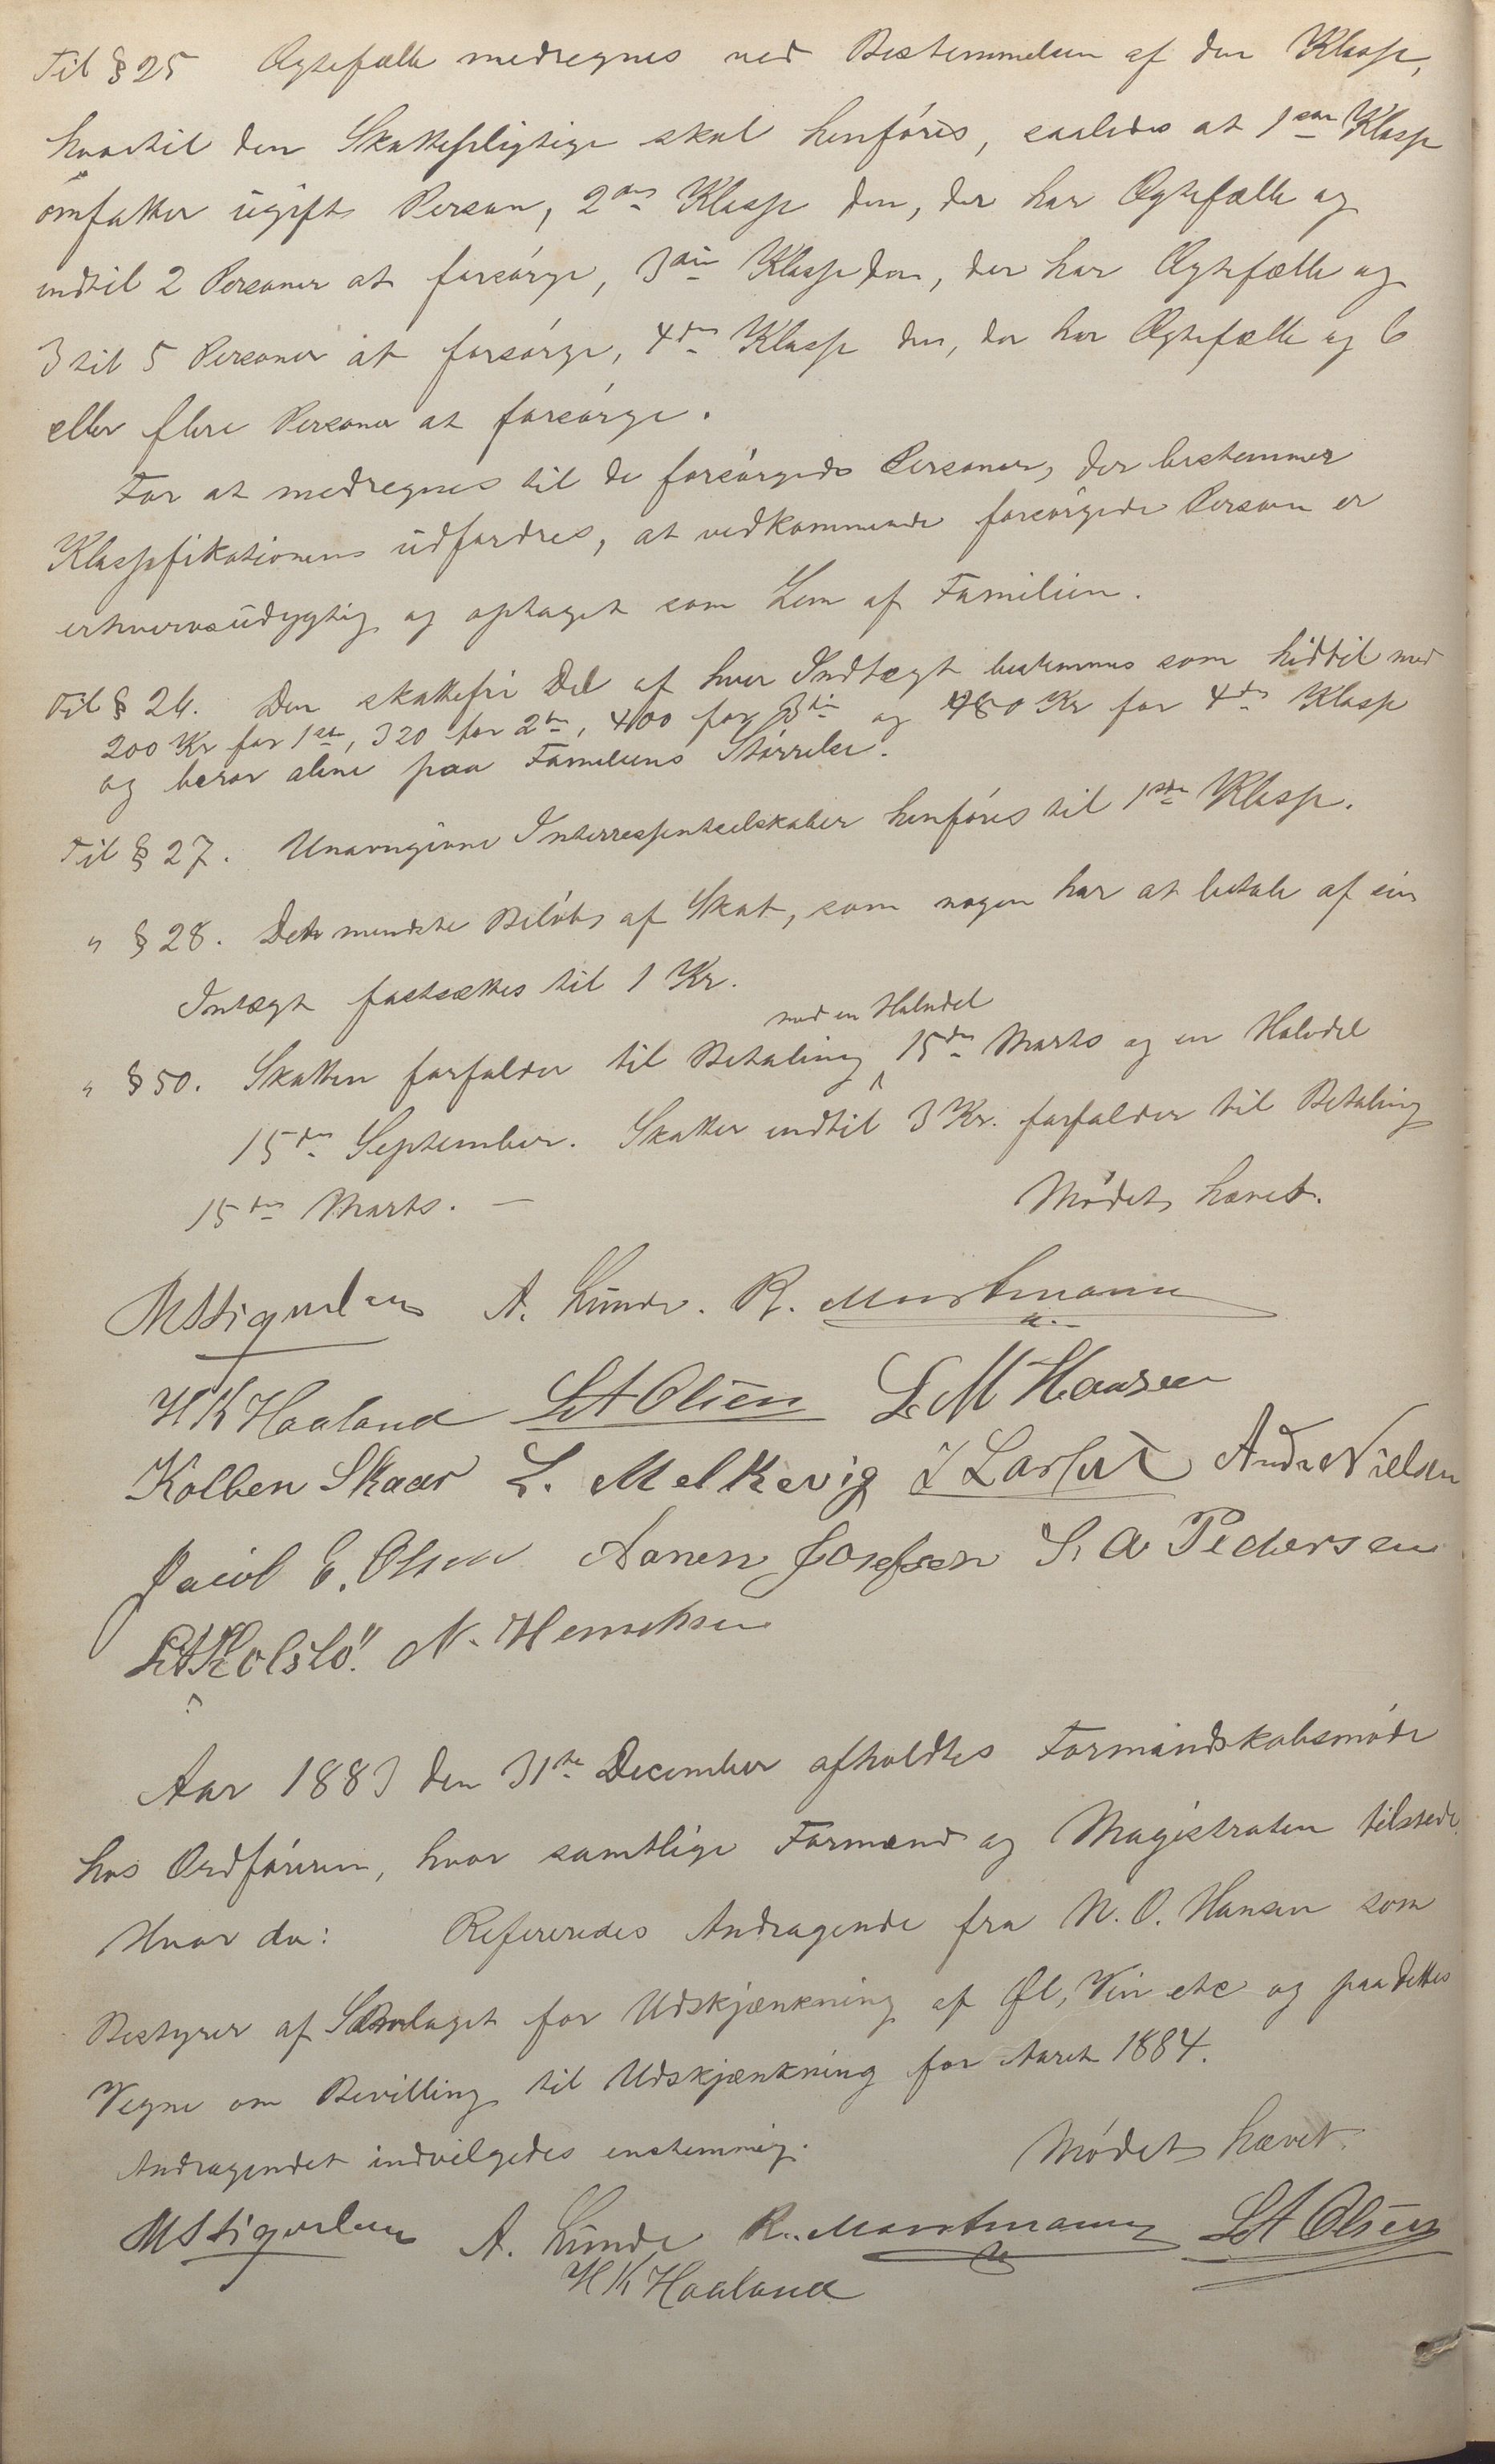 Til § 25 Ægtefælle medregnes ved Bestemmelsen af den Klasse,
hvortil den Skattepligtige skal henføres, saaledes at 1ste Klasse
omfatter ugift Person, 2den Klasse den, der har Ægtefælle og
indtil 2 Personer at forsørge, 3die Klasse den, der har Ægtefælle og
3 til 5 Personer at forsørge, 4de Klasse den, der har Ægtefælle og 6
eller flere Personer at forsørge.
For at medregnes til de forsørgede Personer, der bestemmer
Klassifikationen udfordres, at vedkommende forsørgede Person er
erhvervsudygtig og optaget som Lem af Familien.
Til § 26. Den skattefri Del af hver Indtægt bestemmes som hidtil med
200 Kr for 1ste, 320 for 2den, 400 for 3die og 480 Kr for 4de Klasse
og beror alene paa Familiens Størrelse.
Til § 27. Unavngivne Interressentselskaber henføres til 1ste Klasse.
" § 28. Det mindste Beløb af Skat, som nogen har at betale af sin
Intægt fastsættes til 1 Kr.
med en Halvdel
" § 50. Skatten forfalder til Betaling 15de Marts og en Halvdel
15de September. Skatter indtil 3 Kr. forfalder til Betaling
15de Marts. —
Mødet hævet.
A. Lunde. R.
H K Haaland L A Olsen L. M Hansen
Kolben Skaar L. Melkevig Andr Nielsen
Jacob E. Olsen Aanen Josefsen S. A Pedersen
N. Henrichsen
Aar 1883 den 31te December afholdtes Formandskabsmøde
hos Ordføreren, hvor samtlige Formænd og Magistraten tilstede.
Hvor da: Refereredes Andragende fra N. O. Hansen som
Bestyrer af Samlaget for Udskjænkning af Øl, Vin etc og paa dettes
Vegne om Bevilling til Udskjænkning for Aaret 1884.
Andragendet indvilgedes enstemmig.
Mødet hævet.
A. Lunde R. L A Olsen
H K Haaland